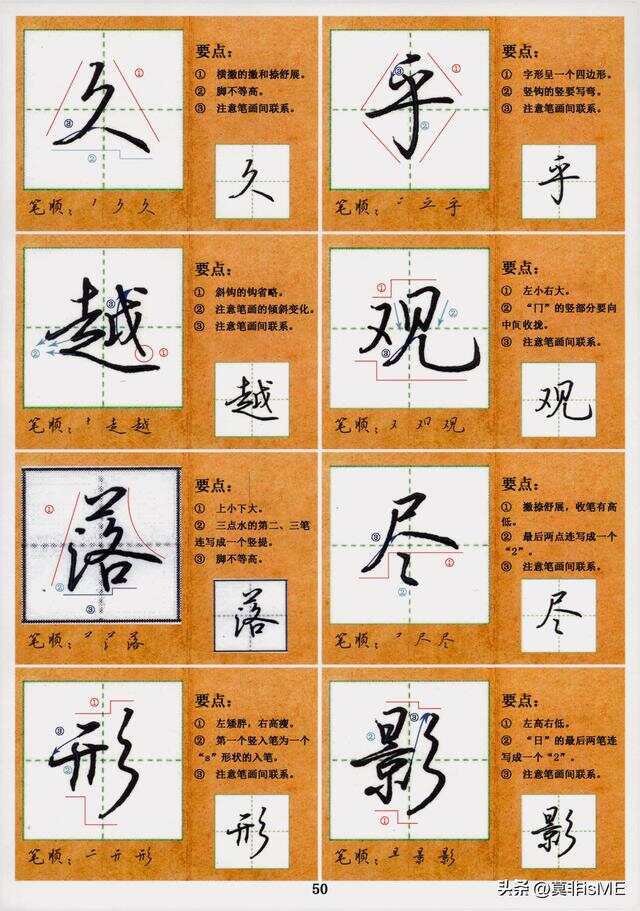 久
要点：
① 横撇的撇和捺舒展。
② 脚不等高。
③ 注意笔画间联系。
久
笔顺：
乎
要点：
① 字形呈一个四边形。
② 竖钩的竖要写弯。
③ 注意笔画间联系。
乎
笔顺：
越
要点：
① 斜钩的钩省略。
② 注意笔画的倾斜变化。
③ 注意笔画间联系。
越
笔顺：走越
观
要点：
① 左小右大。
② “冂”的竖部分要向
中间收拢。
③ 注意笔画间联系。
观
笔顺：又 观 观
落
要点：
① 上小下大。
② 三点水的第二、三笔
连写成一个竖提。
③ 脚不等高。
落
笔顺：落
尽
要点：
① 撇捺舒展，收笔有高
低。
② 最后两点连写成一个
“2”。
③ 注意笔画间联系。
尽
笔顺：尺尽
形
要点：
① 左矮胖，右高瘦。
② 第一个竖入笔为一个
“s”形状的入笔。
③ 注意笔画间联系。
形
笔顺：二开形
影
要点：
① 左高右低。
② “日”的最后两笔连
写成一个“2”。
③ 注意笔画间联系。
影
笔顺：景影
50
头条 @莫非isME